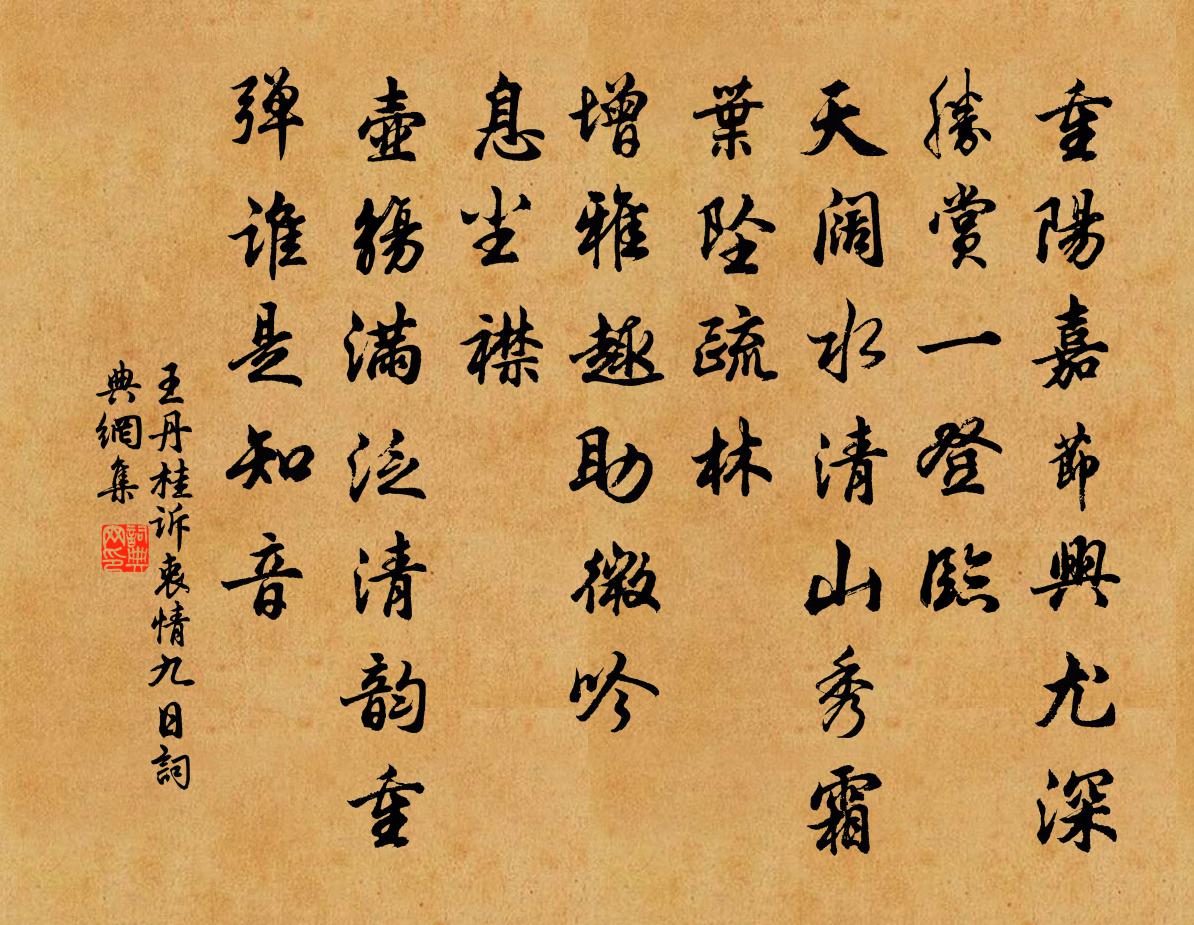 重陽嘉節興尤深
勝賞一登臨
天闊水清山秀霜
葉墜疏林
增雅趣助微吟
息塵襟
壺觴滿泛清韵重
弹誰是知音
王丹桂訴衷情九日詞
典網集
詞典网印